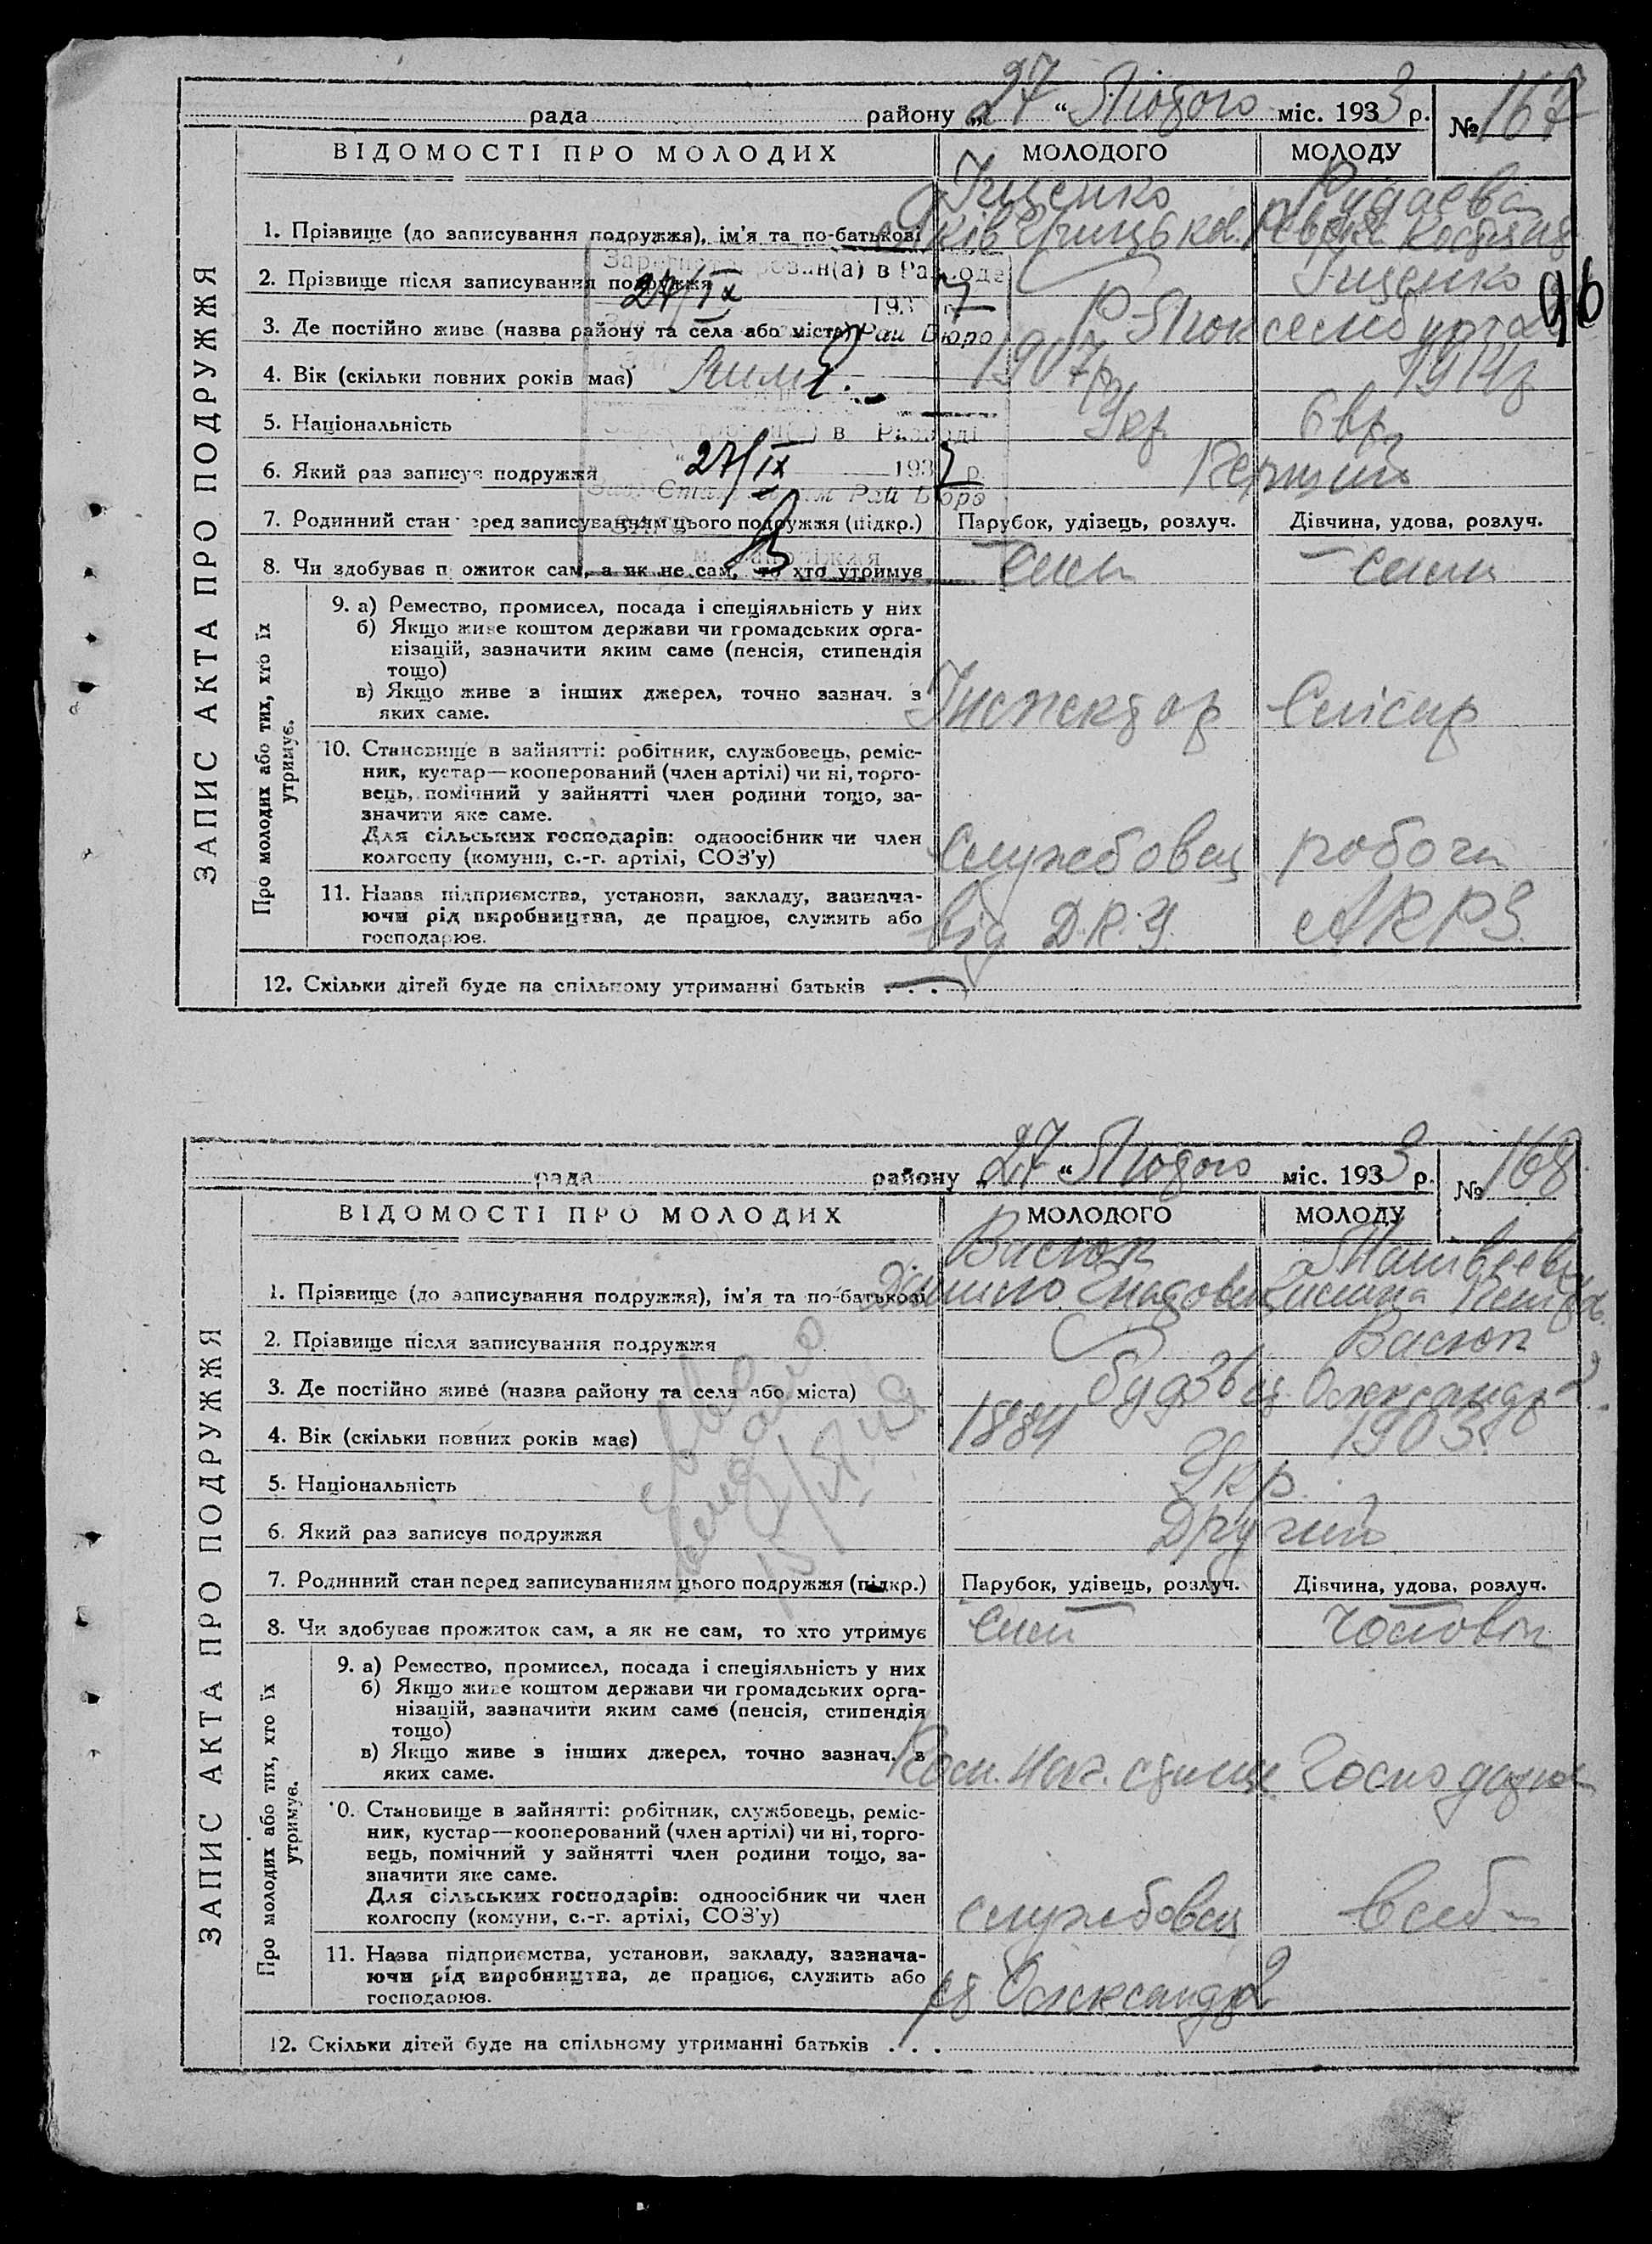 рада району „27“ Лютого міс. 1933 р. № 167
ЗАПИС АКТА ПРО ПОДРУЖЖЯ
ВІДОМОСТІ ПРО МОЛОДИХ МОЛОДОГО МОЛОДУ
Іщенко
1. Прізвище (до записування подружжя), ім'я та по-батькові Яків Грицьков.
2. Прізвище після записування подружжя Іщенко
Зареєстрован(а) в Разводе
27/IX 1937 г.
Рай Бюро
96
3. Де постійно живе (назва району та села або міста)
4. Вік (скільки повних років має) 1907 р. 1914 р
5. Національність Укр. Євр.
в Разводі
6. Який раз записує подружжя Перший
27/IX 1937 р.
Рай Бюро
ЗАГС
м. Запоріжжя
7. Родинний стан перед записуванням цього подружжя (підкр.) Парубок, удівець, розлуч. Дівчина, удова, розлуч.
8. Чи здобуває прожиток сам, а як не сам, то хто утримує Сам Сама
Про молодих або тих, хто їх утримує.
9. а) Ремество, промисел, посада і спеціяльність у них
б) Якщо живе коштом держави чи громадських орга-
нізацій, зазначити яким саме (пенсія, стипендія
тощо)
в) Якщо живе з інших джерел, точно зазнач. з
яких саме. Інспектор Слісар
10. Становище в зайнятті: робітник, службовець, реміс-
ник, кустар—кооперований (член артілі) чи ні, торго-
вець, помічний у зайнятті член родини тощо, за-
значити яке саме.
Для сільських господарів: одноосібник чи член
колгоспу (комуни, с.-г. артілі, СОЗ'у) Службовец робоча
11. Назва підприємства, установи, закладу, зазнача-
ючи рід виробництва, де працює, служить або
господарює. від Д.П.У. АКРРЗ.
12. Скільки дітей буде на спільному утриманні батьків . . . —
рада району „27“ Лютого міс. 1933 р. № 168
ЗАПИС АКТА ПРО ПОДРУЖЖЯ
ВІДОМОСТІ ПРО МОЛОДИХ МОЛОДОГО МОЛОДУ
Васюк Матвеева
1. Прізвище (до записування подружжя), ім'я та по-батькові Данило
2. Прізвище після записування подружжя Васюк
3. Де постійно живе (назва району та села або міста) Олександр
4. Вік (скільки повних років має) 1884 1903
5. Національність Укр.
6. Який раз записує подружжя Другий
7. Родинний стан перед записуванням цього подружжя (підкр.) Парубок, удівець, розлуч. Дівчина, удова, розлуч.
8. Чи здобуває прожиток сам, а як не сам, то хто утримує Сам Чоловік
Про молодих або тих, хто їх утримує.
9. а) Ремество, промисел, посада і спеціяльність у них
б) Якщо живе коштом держави чи громадських орга-
нізацій, зазначити яким саме (пенсія, стипендія
тощо)
в) Якщо живе з інших джерел, точно зазнач. в
яких саме. Пом. Нач. станції
10. Становище в зайнятті: робітник, службовець, реміс-
ник, кустар—кооперований (член артілі) чи ні, торго-
вець, помічний у зайнятті член родини тощо, за-
значити яке саме.
Для сільських господарів: одноосібник чи член
колгоспу (комуни, с.-г. артілі, СОЗ'у) службовец
11. Назва підприємства, установи, закладу, зазнача-
ючи рід виробництва, де працює, служить або
господарює. Олександр
12. Скільки дітей буде на спільному утриманні батьків . . .